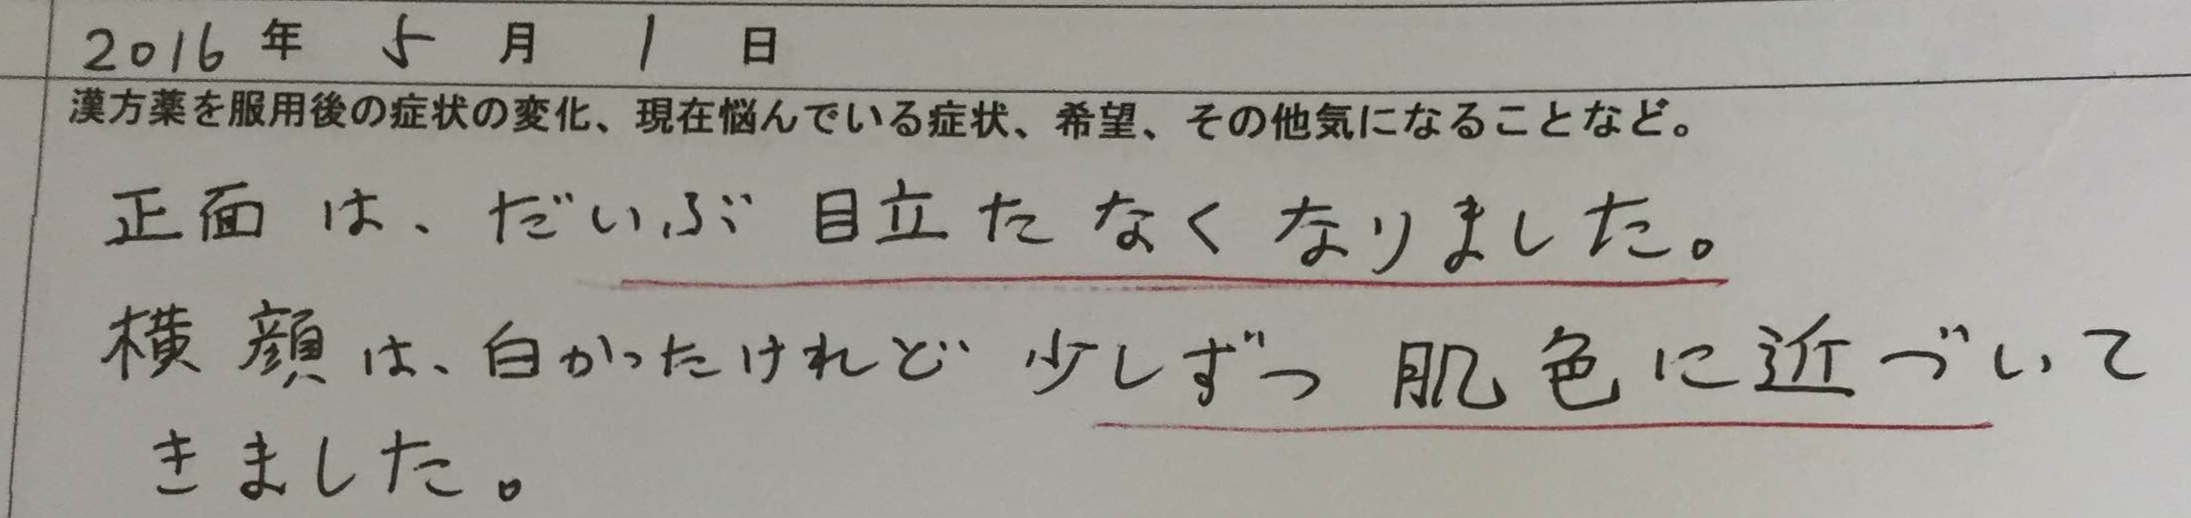 2016年 5月 1日
漢方薬を服用後の症状の変化、現在悩んでいる症状、希望、その他気になることなど。
正面は、だいぶ目立たなくなりました。
横顔は、白かったけれど少しずつ肌色に近づいて
きました。